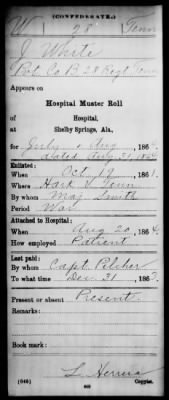 (CONFEDERATE.)
W 28 Tenn
J White
Pvt Co B 28 Regt Tenn
Appears on
Hospital Muster Roll
of Hospital,
Shelby Springs, Ala,
for July & Aug, 1864
dated Aug 31, 1864
Enlisted:
When Oct 19, 1861.
Where Tenn
By whom Maj Smith
Period War
Attached to Hospital:
When Aug 20, 1864
How employed Patient
Last paid:
By whom Capt Pilcher
To what time Dec 31, 1863.
Present or absent Present
Remarks:
Book mark:
L Herrera
(646) Copyist.